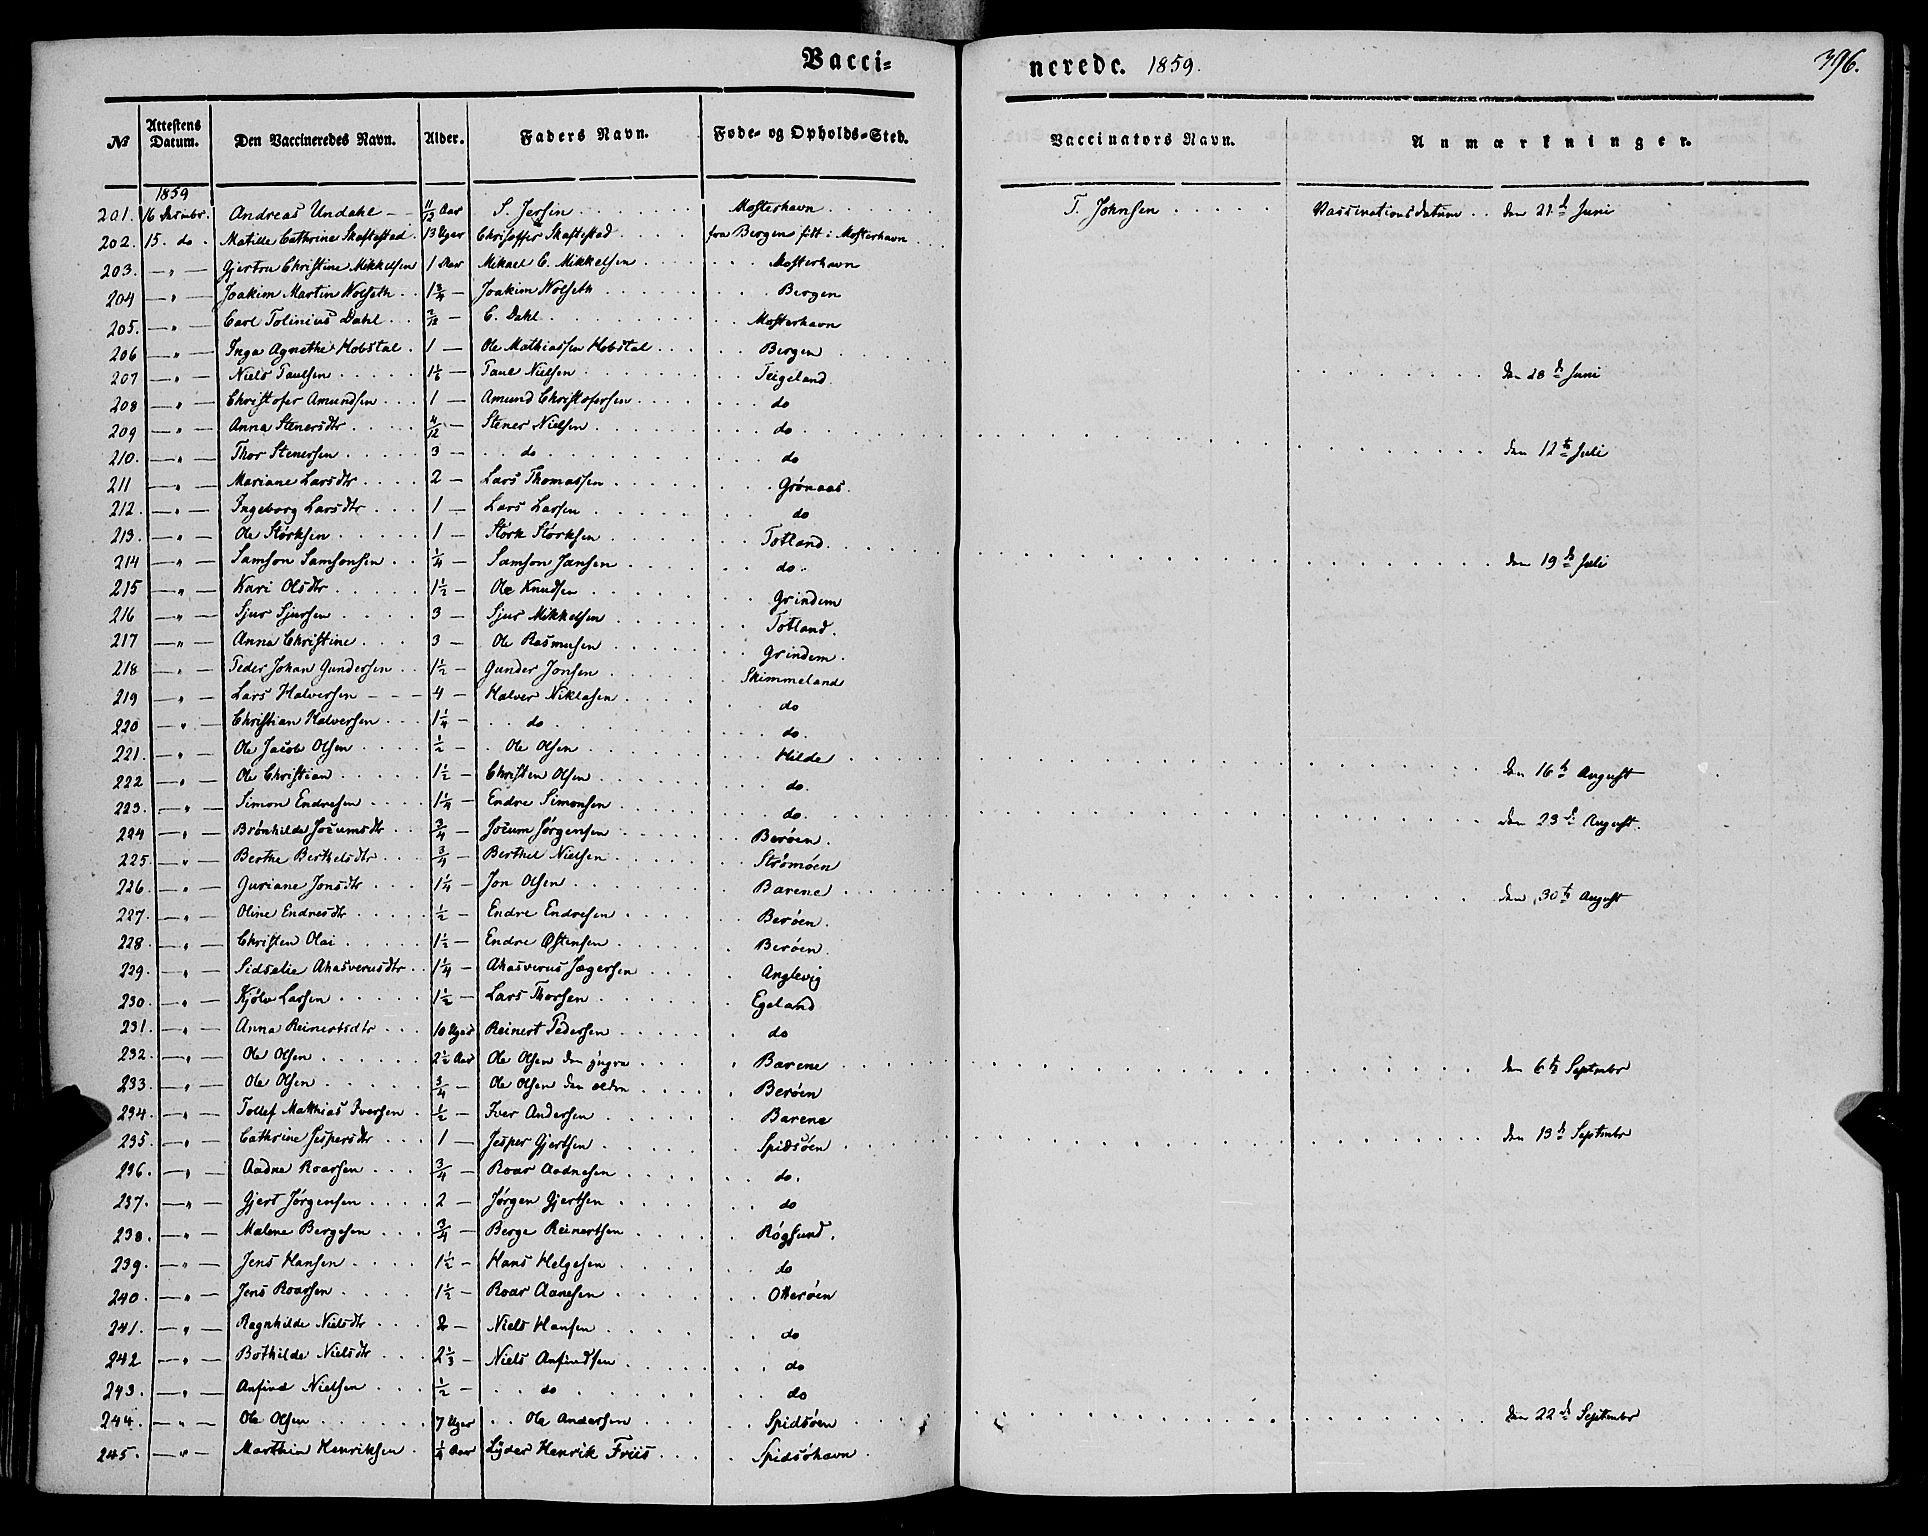 Vacci- nerede. 1859. 396.
No Attestens Datum. Den Vaccineredes Navn. Alder. Faders Navn. Føde- og Opholds-Sted. Vaccinators Navn. Anmærkninger.
1859
201. 16 Desmbr. Andreas Undahl 11/12 Aar S. Jersin Mosterhavn T. Johnsen Vassinationsdatum den 21de Juni
202. 15. do Matille Cathrine Skaftestad 13 Uger Christoffer Skaftestad fra Bergen født i Mosterhavn
203. " Gjertru Christine Mikkelsen 1 Aar Mikael C. Mikkelsen Mosterhavn
204 " Joakim Martin Nolseth 1 3/4 Joakim Nolseth Bergen
205. " Carl Tolinius Dahl 2/12 C. Dahl Mosterhavn
206 " Inga Agnethe Hobstal 1 Ole Mathiassen Hobstal Bergen
207 " Niels Paulsen 1 1/6 Paul Nielsen Teigeland den 28de Juni
208 " Christofer Amundsen 1 Amund Christofersen do
209 " Anna Stenersdtr 4/12 Stener Nielsen do
210. " Thor Stenersen 3 do do den 12te Juli
211 " Mariane Larsdtr 2 Lars Thomassen Grønaas.
212. " Ingeborg Larsdtr 1 Lars Larsen do
213. " Ole Størksen 1 Størk Størksen Totland.
214 " Samson Samsonsen 1/4 Samson Jansen do. den 19de Juli
215 " Kari Olsdtr 1 1/2 Ole Knudsen Grindem
216 " Sjur Sjursen 3 Sjur Mikkelsen Totland.
217 " Anna Christine 3 Ole Rasmusen Grindem.
218 " Peder Johan Gundersen 1 1/2 Gunder Jonsen Skimmeland
219 " Lars Halversen 4 Halver Niklasen do
220 " Christian Halversen 1 1/4 do do.
221. " Ole Jacob Olsen 1/2 Ole Olsen Hilde
222 " Ole Christian 1 1/2 Christen Olsen do. den 16de August
223. " Simon Endresen 1 1/4 Endre Simonsen do.
224 " Brønhilde Jocumsdtr 3/4 Jocum Jørgensen Berøen. den 23de August.
225. " Berthe Berthelsdtr 3/4 Berthel Nielsen Strømøen
226. " Guriane Jonsdtr 1 1/4 Jon Olsen Barene den 30te August
227. " Oline Endresdtr 1/2 Endre Endresen Berøen.
228. " Christen Olai 1 1/2 Endre Østensen Berøen.
229. " Sidselie Ahasverusdtr 1 1/4 Ahasverus Jægersen Anglevig
230. " Kjølv Larsen 1 1/2 Lars Thorsen Egeland
231. " Anna Reinertsdtr 10 Uger Reinert Pedersen do
232. " Ole Olsen 2 1/2 Aar Ole Olsen den yngre Barene den 6te Septmbr
233. " Ole Olsen 3/4 Ole Olsen den eldre Berøen
234. " Tollef Matthias Iversen 1/2 Iver Andersen Barene
235. " Cathrine Jespersdtr 1 Jesper Gjertsen Spidsøen den 13de Septmbr
236. " Aadne Roarsen 3/4 Roar Aadnesen do.
237. " Gjert Jørgensen 2 Jørgen Gjertsen do
238. " Malene Bergesen 3/4 Berge Reinertsen Røgsund.
239. " Jens Hansen 1 1/2 Hans Helgesen do
240. " Jens Roarsen 1 1/2 Roar Aanesen Otterøen
241. " Ragnhilde Nielsdtr 2 Niels Hansen do
242 " Bothilde Nielsdtr 2 1/3 Niels Anfindsen do
243. " Anfind Nielsen 1/2 do do
244. " Ole Olsen 7 Uger Ole Andersen Spidsøen den 22de Septmbr
245. " Marthin Henriksen 1/4 Aar Lyder Henrik Friis Spidsøhavn